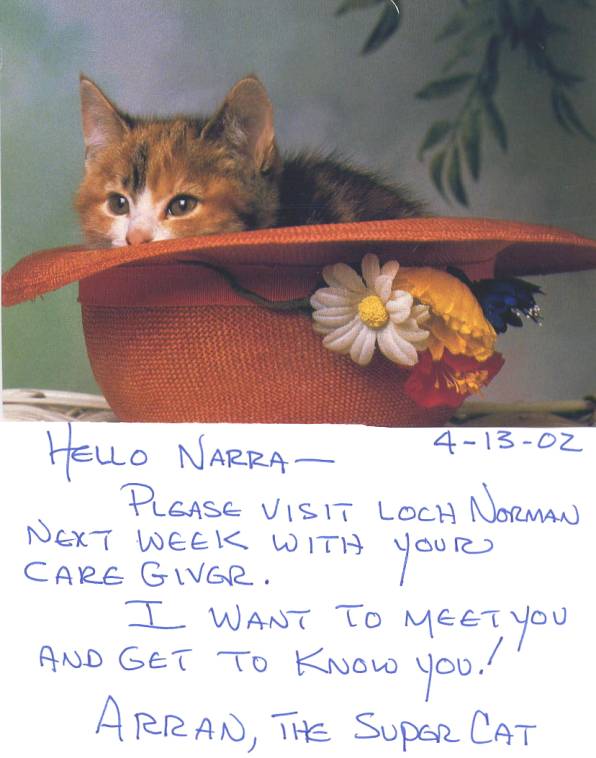 HELLO NARRA— 4-13-02
PLEASE VISIT LOCH NORMAN
NEXT WEEK WITH YOUR
CARE GIVER.
I WANT TO MEET YOU
AND GET TO KNOW YOU!
ARRAN, THE SUPER CAT